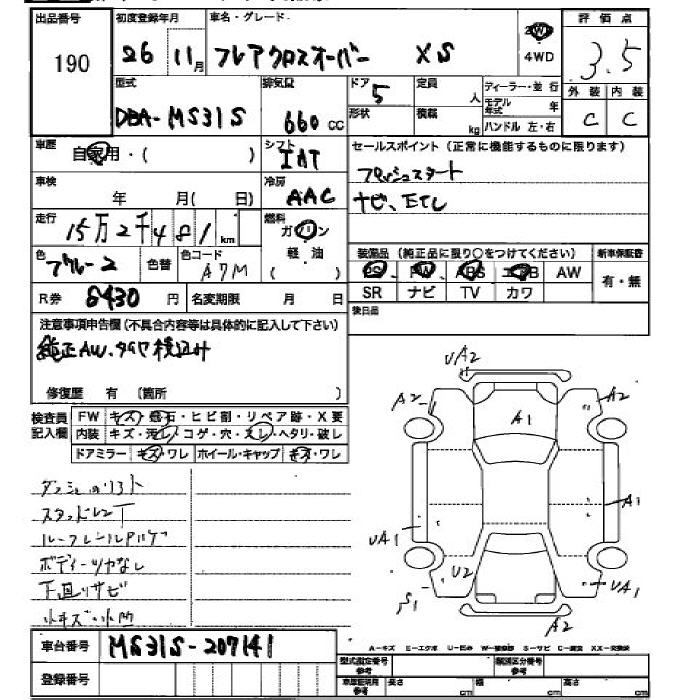 出品番号 初度登録年月 車名・グレード 評価点
190 26 11月 フレアクロスオーバー XS 2WD 4WD 3.5
型式 排気量 ドア 5 定員 人 ディーラー・並行 外装 内装
DBA-MS31S 660cc 形状 積載 kg モデル年式 年 C C
ハンドル 左・右
車歴 自家用・( ) シフト IAT セールスポイント(正常に機能するものに限ります)
プッシュスタート
車検 年 月( 日) 冷房 AAC ナビ、ETC
走行 15万2千481km 燃料 ガソリン
軽油
( )
装備品(純正品に限り○をつけてください) 新車保証書
色 色替 色コード A7M PS PW ABS エアB AW 有・無
R券 8430円 名変期限 月 日 SR ナビ TV カワ
後日品
注意事項申告欄(不具合内容等は具体的に記入して下さい)
純正AW、
修復歴 有 (箇所 )
検査員記入欄 FW キズ・飛石・ヒビ割・リペア跡・X要
内装 キズ・汚レ・コゲ・穴・スレ・ヘタリ・破レ
ドアミラー キズ・ワレ ホイール・キャップ キズ・ワレ
UA2
A2 A2
A1
A1
UA1
U2 UA1
S1
A2
ボディーツヤなし
下回りサビ
車台番号 MS31S-207141
A-キズ E-エクボ U-凹み W-補修跡 S-サビ C-腐食 XX-交換済
登録番号 型式指定番号 参考 類別区分番号 参考
車庫証明用 参考 長さ cm 幅 cm 高さ cm